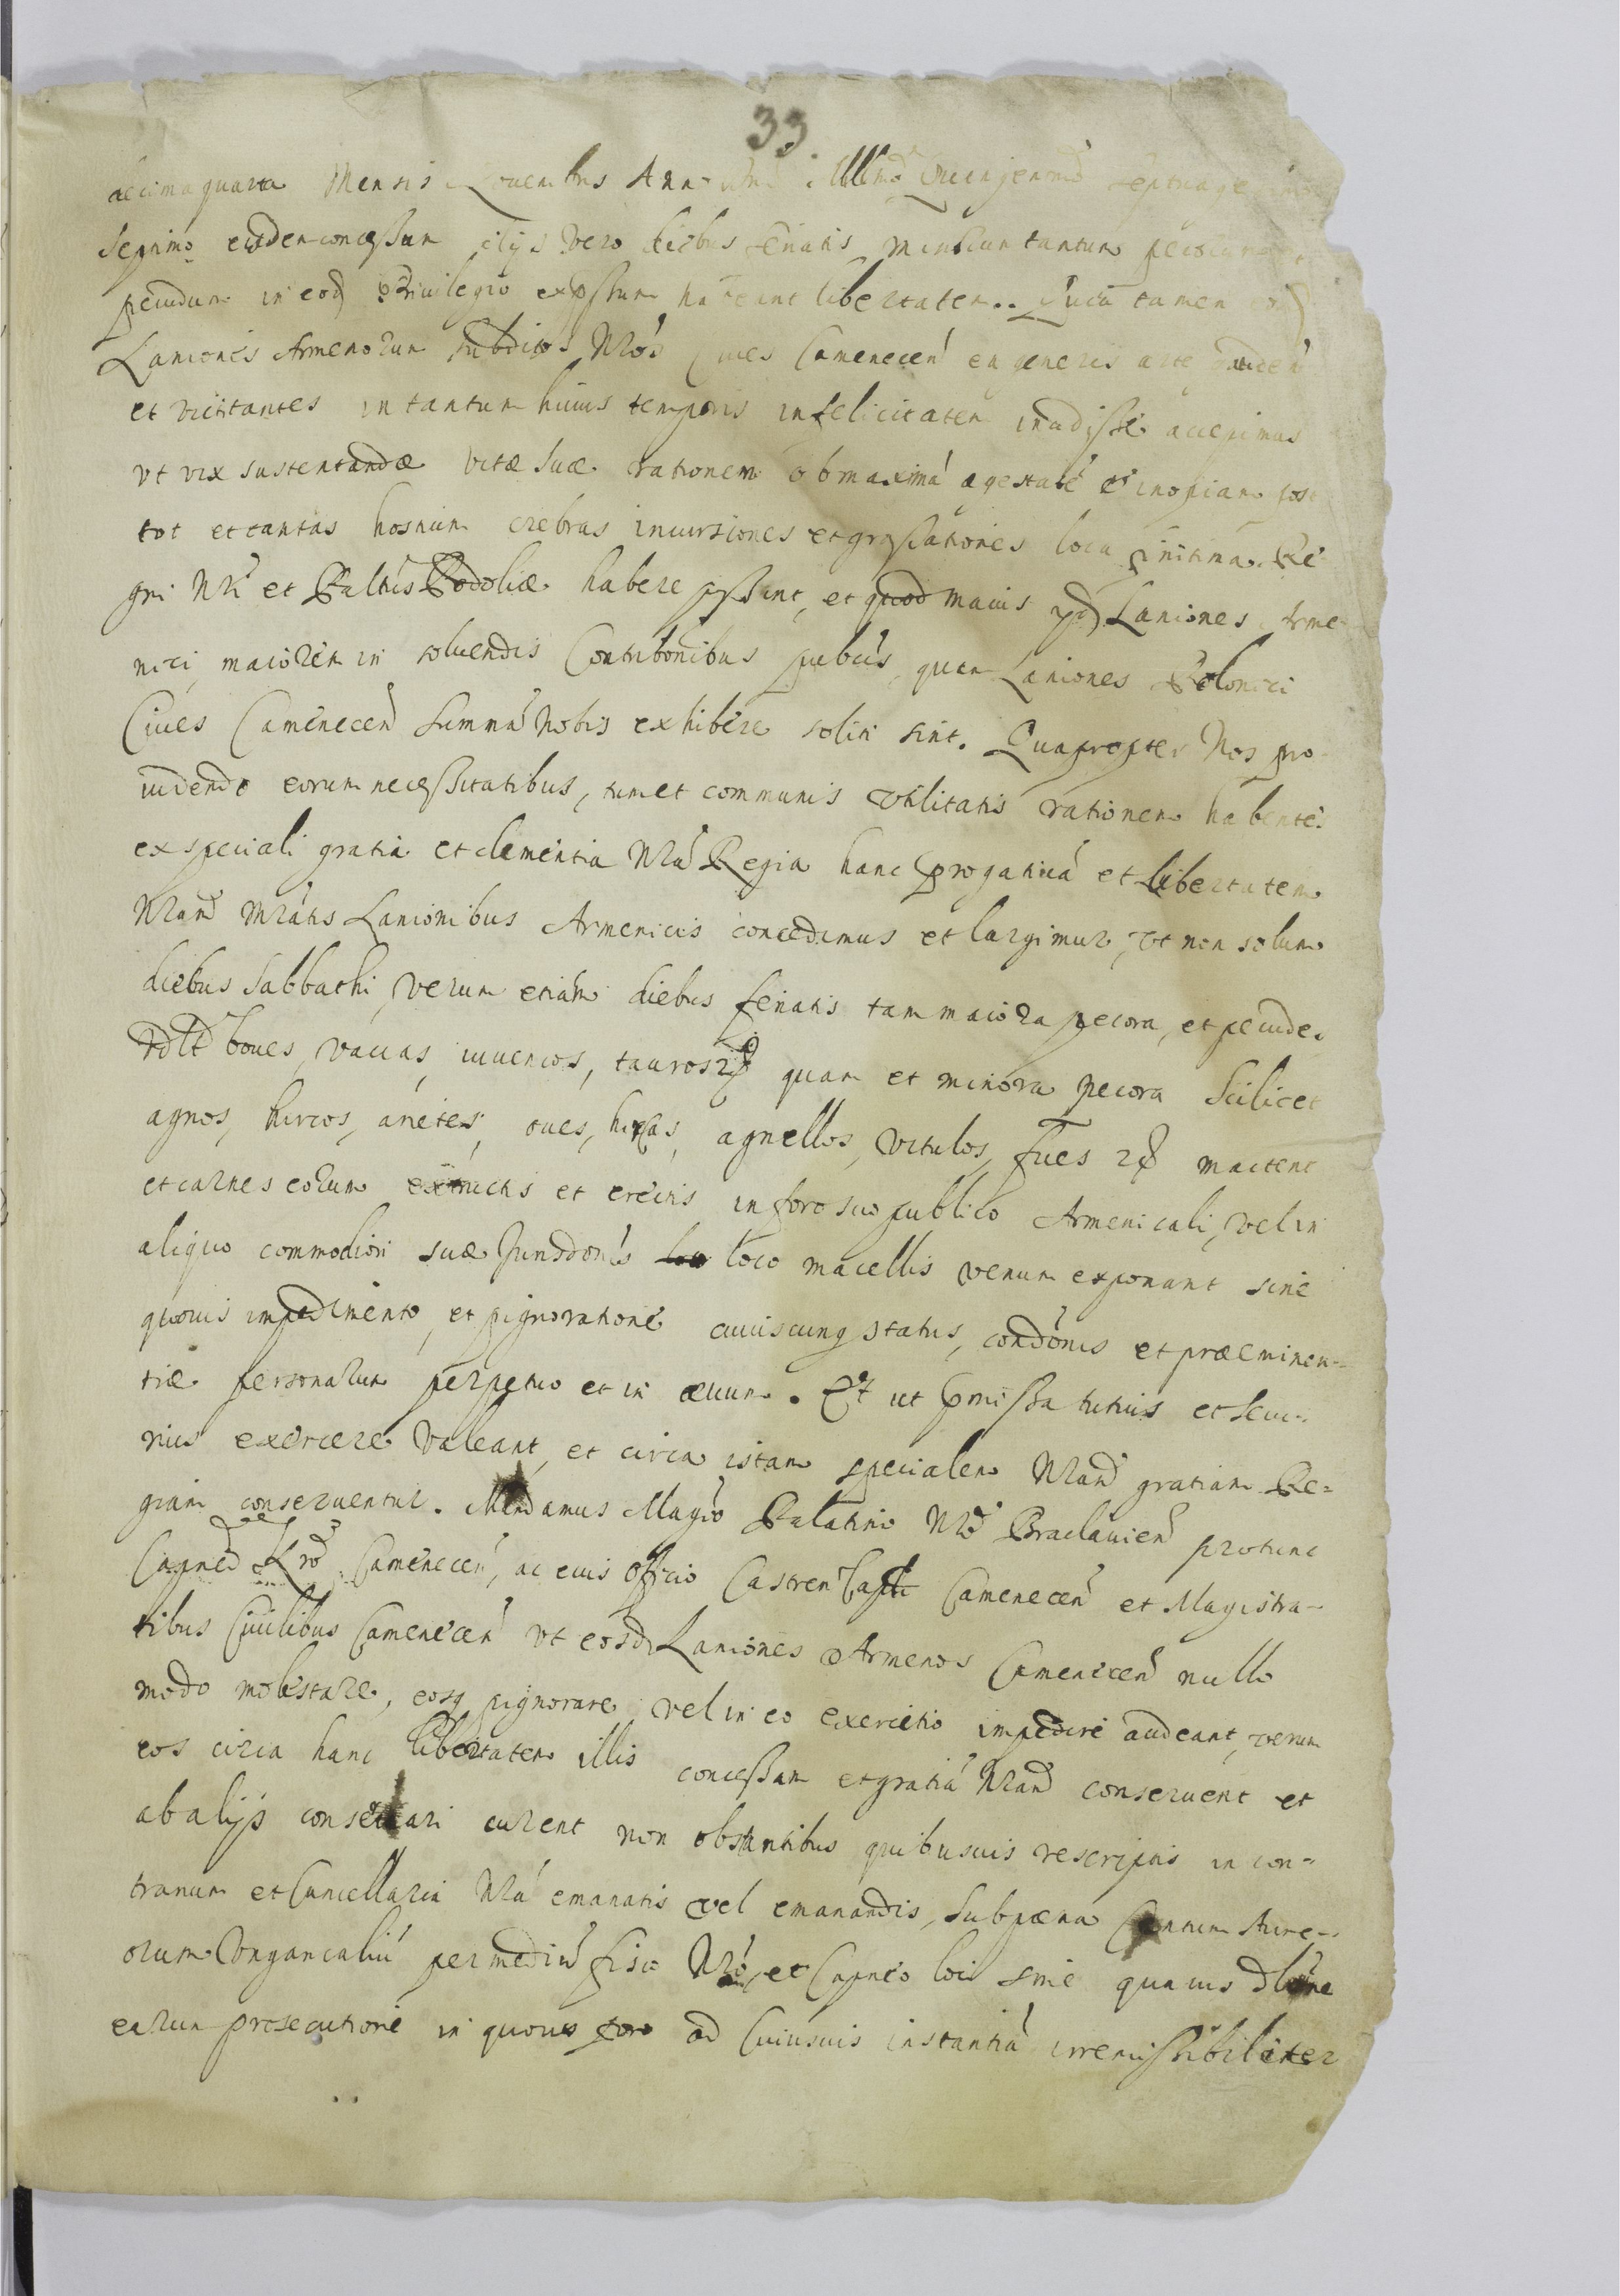 33.
decima quarta Mensis Nouembris Anno Millmo Quingenmo septuage
septimo eisdem concessum alijs vero diebus feriatis minorum tantum pecorum
pecudum in eod Priuilegio expssum habeant libertatem. Quia tamen
Laniones Armenorum subditos Nros Ciues Camenecen ea generis arte
et victitantes in tantum huius temporis infelicitatem incidisse accepimus
vt vix sustentandæ vitæ suæ rationem ob maximá egestaté et inopiam post
tot et tantas hostium crebras incursiones et grassationes loca finitima Re
gni Nri et Paltús Podoliæ habere possint, et quod maius pd Laniones Arme
nici, maiorem in soluendis Contribonibus pubcis, quam Laniones Polonici
Ciues Camenecen summá Nobis exhibere soliti sint. Quapropter Nos pro
uidendo eorum necessitatibus, tum et communis vtilitatis rationem habentes
ex speciali gratia et clementia Nrá Regia hanc progatiuá et libertatem
Nram Mratis Lanionibus Armenicis concedimus et largimur, vt non solum
diebus Sabbathi, verum etiam diebus feriatis tam maiora pecora, et pecudes
vdlt boues, vaccas, iuuencos, tauros etc quam et minora pecora scilicet
agnos, hircos, arietes, oues, hircas, agnellos, vitulos, sues etc mactent
et carnes eorum extructis et erectis in foro suo publico Armenicali, vel in
aliquo commodiori suæ Jurisdonis loco macellis venum exponant sine
quouis impedimento, et pignoratione cuiuscunq status, condonis et præeminen-
tiæ personarum perpetuo et in æuum. Et ut pmissa tutius et secu-
rius exercere valeant, et circa istam specialem Nram gratiam Re=
giam conseruentur. Mandamus Magco Palatino Nro Braclauien protunc
Capneo Nro Camenecen, ac eius Officio Castren Capit Camenecen et Magistra-
tibus Ciuilibus Camenecen vt eosd Laniones Armenos Camenecen nullo
modo molestare, eosq pignorare vel in eo exercitio impedire audeant, verum
eos circa hanc libertatem illis concessam et gratiá Nram conseruent et
ab alijs conseruari curent non obstantibus quibusuis rescriptis in con-
trarium et Cancellaria Nrá emanatis vel emanandis, sub pæna Centum Aure-
orum Vngaricaliú per mediú fisco Nro, et Capneo loci sine quauis dlone
earum prosecutione in quouis foro ad Cuiusuis instantiá irremissibiliter